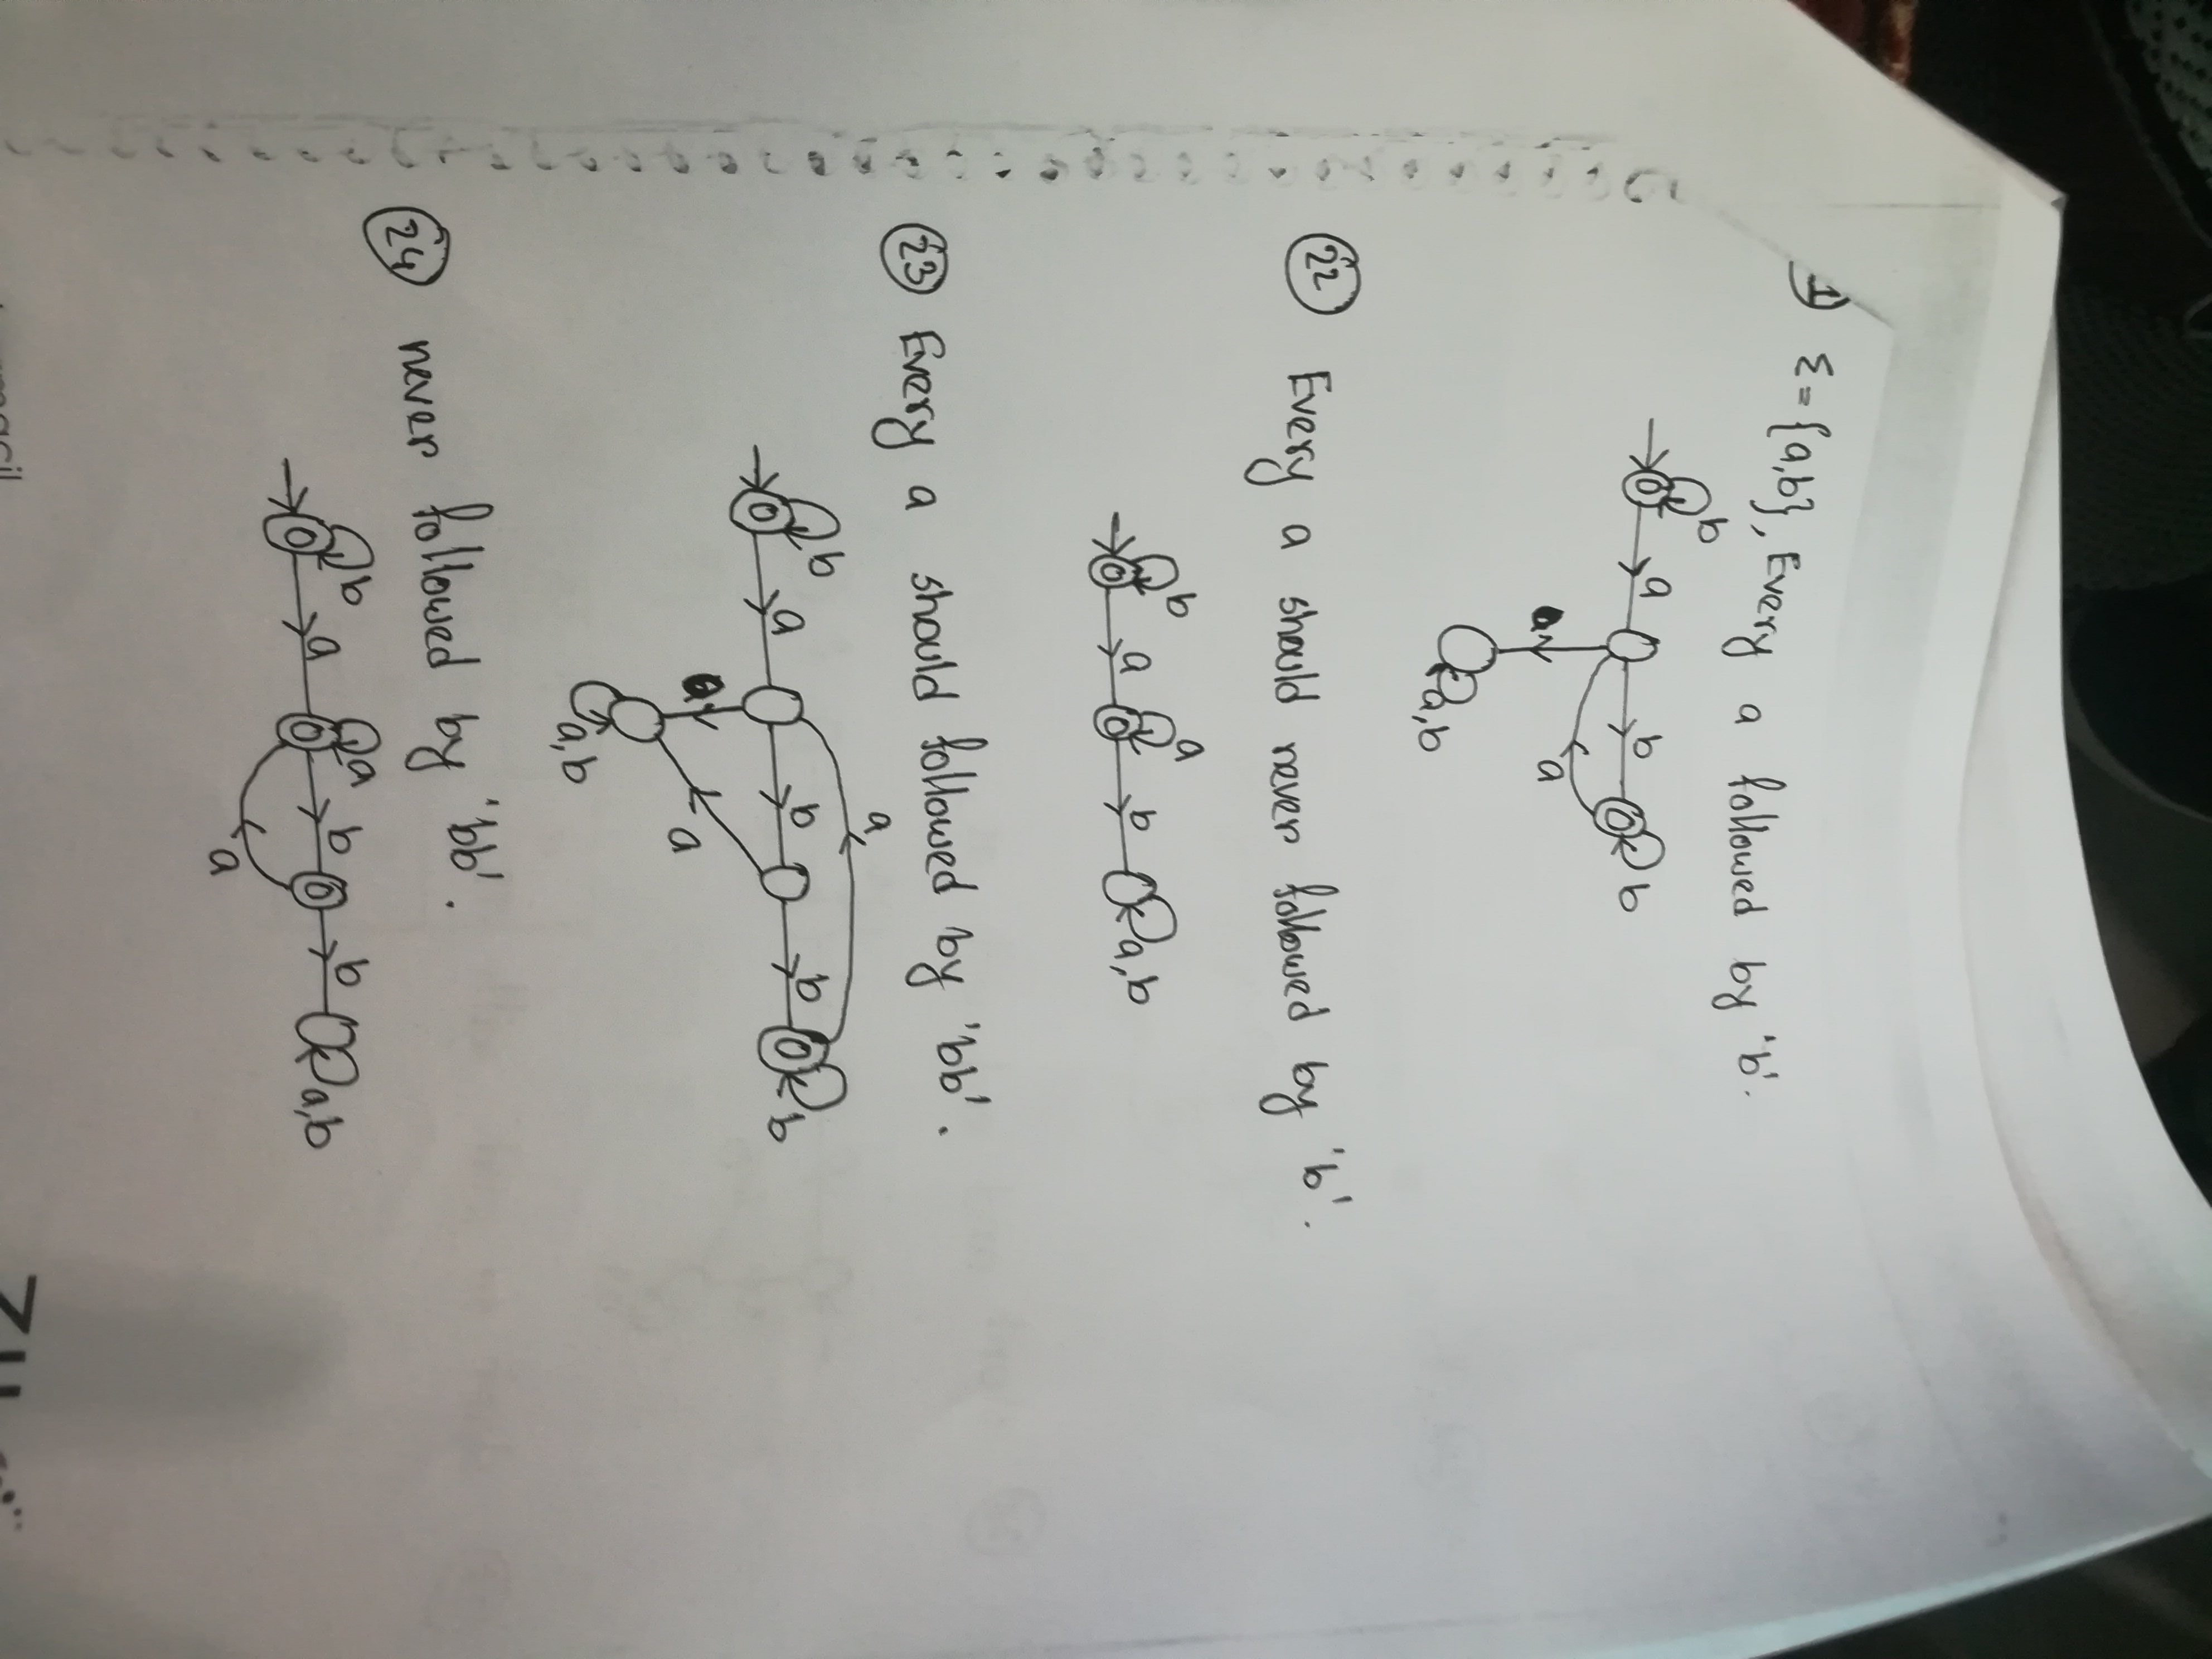 1) Σ={a,b}, Every a followed by 'b'.
b
a b b
a a
a,b
22 Every a should never followed by 'b'.
b a
a b a,b
23 Every a should followed by 'bb'.
a
b
a b b b
a a
a,b
24 never followed by 'bb'.
b a
a b b a,b
a